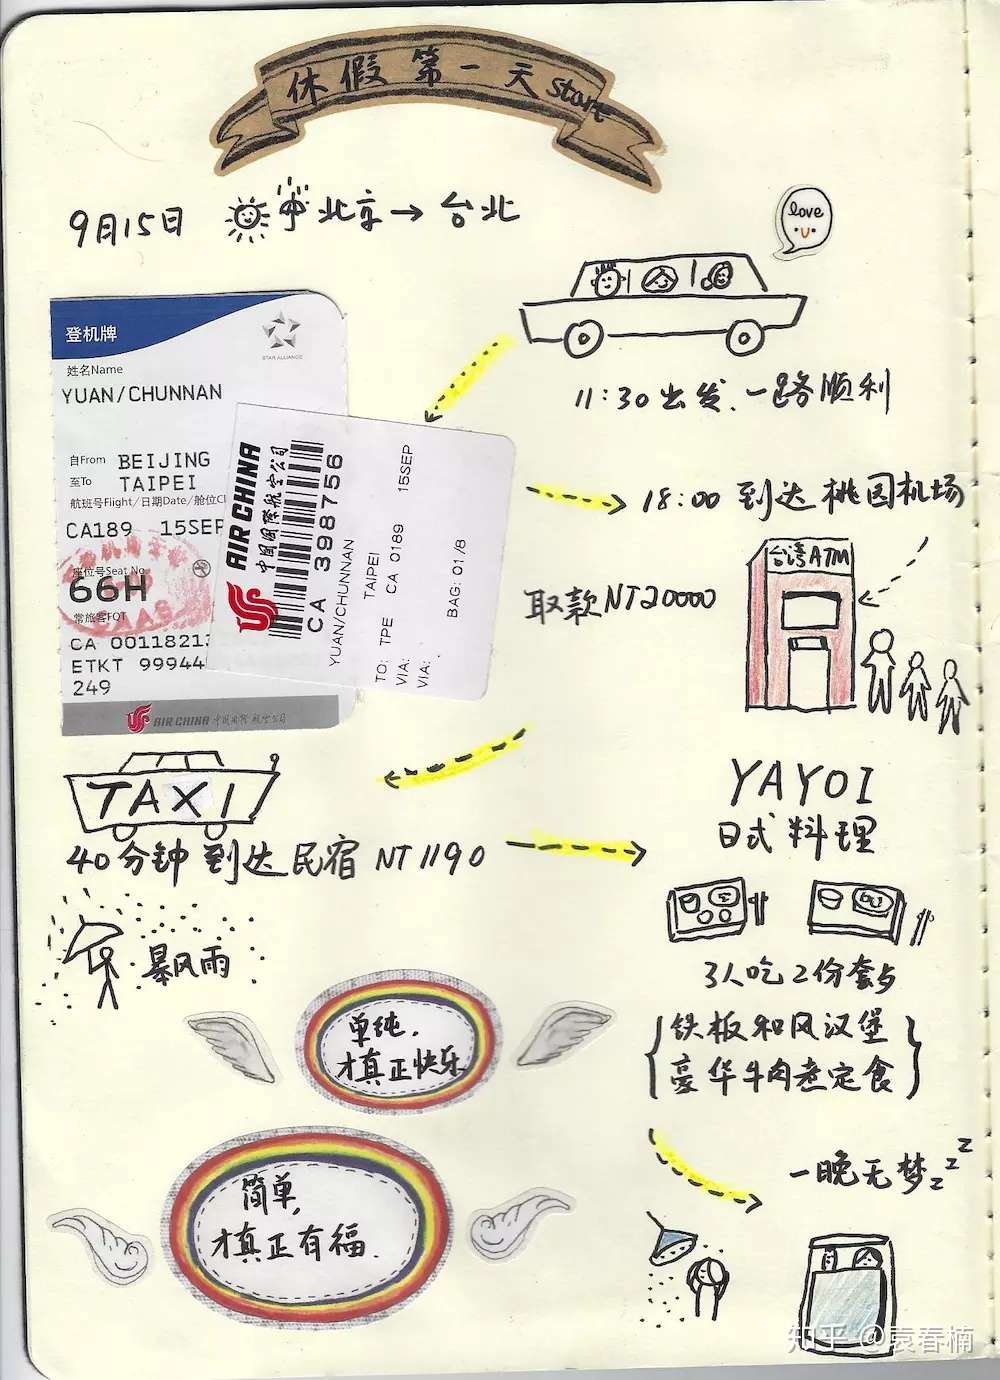 休假第一天start
9月15日 北京→台北
love
11:30出发、一路顺利
登机牌
STAR ALLIANCE
姓名Name
YUAN/CHUNNAN
自From BEIJING
至To TAIPEI
航班号Flight/日期Date/舱位Cl
CA189 15SEP
座位号Seat No.
66H
常旅客FQT
CA 00118213
ETKT 99944
249
AIR CHINA 中国国际航空公司
AIR CHINA
中国国际航空公司
CA 398756
YUAN/CHUNNAN
TAIPEI
TO: TPE CA 0189 15SEP
VIA:
VIA:
BAG: 01/8
18:00 到达桃园机场
台湾ATM
取款NT20000
TAXI
40分钟到达民宿 NT1190
暴风雨
YAYOI
日式料理
3人吃2份套
铁板和风汉堡
豪华牛肉煮定食
单纯,
才真正快乐
简单,
才真正有福.
一晚无梦zzz
知乎 @袁春楠